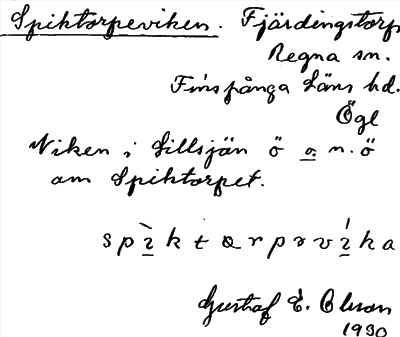 Spiktorpeviken. Fjärdingstorp
Regna sn.
Finspånga Läns hd.
Ögl
Viken i Lillsjän ö o. n. ö
om Spiktorpet.
Gustaf E. Olson
1930